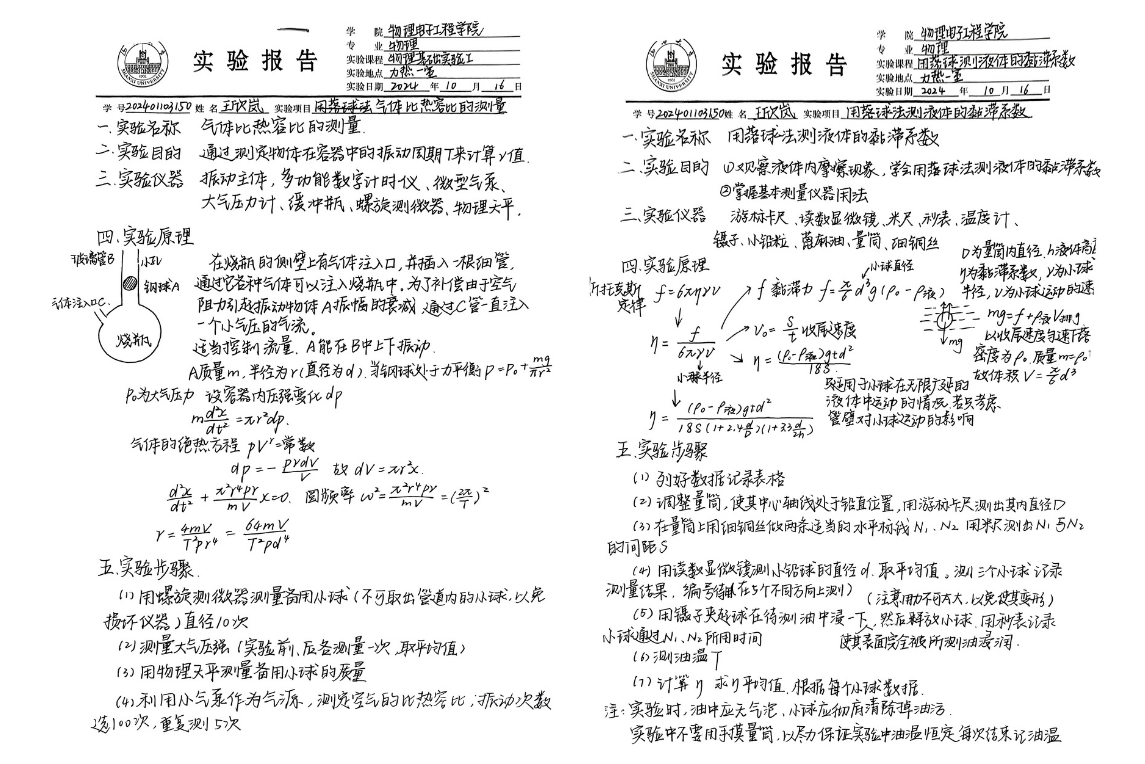 实验报告
学院 物理电子工程学院
专业 物理
实验课程 物理基础实验I
实验地点 力热一室
实验日期 2024 年 10 月 16 日
学号 202401103150 姓名 王欣岚 实验项目 用落球法气体比热容比的测量
一.实验名称 气体比热容比的测量.
二.实验目的 通过测定物体在容器中的振动周期T来计算γ值.
三.实验仪器 振动主体,多功能数字计时仪、微型气泵、
大气压力计、缓冲瓶、螺旋测微器、物理天平.
四.实验原理
玻璃管B 小孔
钢球A
气体注入口C.
烧瓶
在烧瓶的侧壁上有气体注入口,并插入一根细管,
通过它各种气体可以注入烧瓶中.为了补偿由于空气
阻力引起振动物体A振幅的衰减 通过C管一直注入
一个小气压的气流。
适当控制流量.A能在B中上下振动.
A质量m,半径为r(直径为d).当钢球处于力平衡 P=P₀+mg/πr²
P₀为大气压力 设容器内压强变化dp
m d²x/dt² = πr²dp.
气体的绝热方程 pV^γ=常数
dp=-pγdV/V 故 dV=πr²x.
d²x/dt² + π²r⁴pγ/mV x=0. 圆频率 ω²=π²r⁴pγ/mV=(2π/T)²
γ=4mV/T²pr⁴=64mV/T²pd⁴
五.实验步骤.
(1)用螺旋测微器测量备用小球(不可取出管道内的小球,以免
损坏仪器)直径10次
(2)测量大气压强(实验前、后各测量一次,取平均值)
(3)用物理天平测量备用小球的质量
(4)利用小气泵作为气源,测定空气的比热容比,振动次数
选100次,重复测5次
实验报告
学院 物理电子工程学院
专业 物理
实验课程 用落球测液体的黏滞系数
实验地点 力热一室
实验日期 2024 年 10 月 16 日
学号 202401103150 姓名 王欣岚 实验项目 用落球法测液体的黏滞系数
一.实验名称 用落球法测液体的黏滞系数
二.实验目的 ①观察液体内摩擦现象,学会用落球法测液体的黏滞系数
②掌握基本测量仪器用法
三.实验仪器 游标卡尺、读数显微镜、米尺、秒表、温度计、
镊子、小铅粒、蓖麻油、量筒、细铜丝
四.实验原理
小球直径
斯托克斯定律 f=6πηγV
f 黏滞力 f=π/6 d³g(ρ₀-ρ液)
η=f/6πγV
V₀=S/t 收尾速度
η=(ρ₀-ρ液)gtd²/18S.
小球半径
η=(ρ₀-ρ液)gtd²/18S(1+2.4d/D)(1+3.3d/2h)
D为量筒内直径.h液体高
η为黏滞系数,γ为小球
半径,v为小球运动的速
mg=f+ρ液V排g
mg
以收尾速度匀速下落
密度为ρ₀.质量m=ρ₀
故体积V=π/6 d³
只适用于小球在无限广延的
液体中运动的情况.若只考虑
管壁对小球运动的影响
五.实验步骤
(1)列好数据记录表格
(2)调整量筒,使其中心轴线处于铅直位置,用游标卡尺测出其内直径D
(3)在量筒上用细铜丝做两条适当的水平标线N₁、N₂ 用米尺测出N₁与N₂
的间距S
(4)用读数显微镜测小铅球的直径d.取平均值。测三个小球记录
测量结果,编号(在5个不同方向上测)(注意用力不可太大,以免使其变形)
(5)用镊子夹起球在待测油中浸一下,然后释放小球.用秒表记录
小球通过N₁、N₂所用时间 使其表面完全被所测油浸润.
(6)测油温T
(7)计算η 求η平均值.根据每个小球数据.
注:实验时,油中应无气泡,小球应彻底清除掉油污.
实验中不要用手摸量筒,以尽力保证实验中油温恒定 每次结束记油温